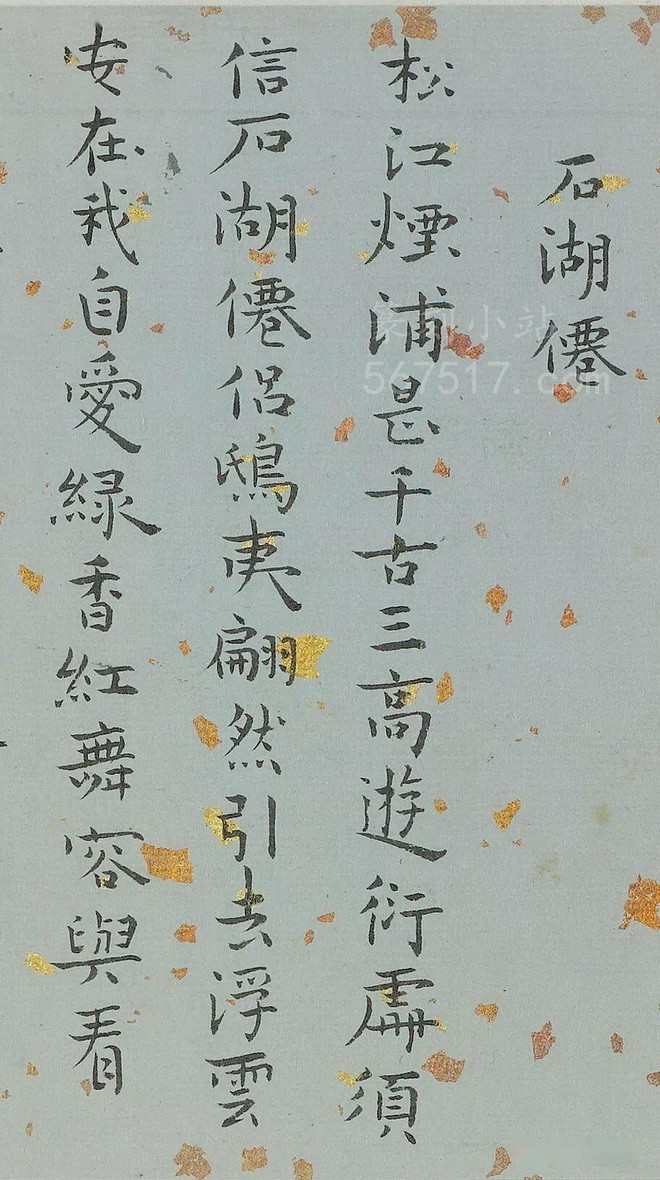 石湖僊
松江煙浦是千古三高遊衍處須
信石湖僊侶鴟夷翩然引去浮雲
安在我自愛緑香紅舞容與看
小站
567517.com